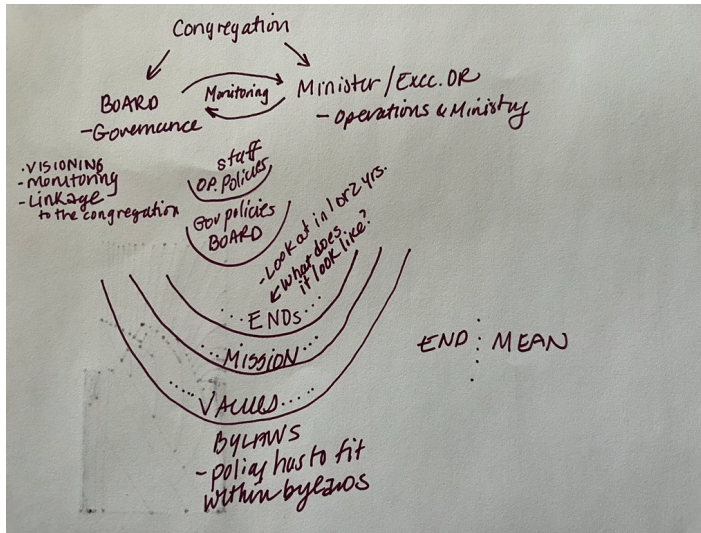 Congregation
BOARD
-Governance
Monitoring
Minister/Exec. DR
- Operations & Ministry
·VISIONING
-Monitoring
-Linkage
to the congregation
staff
OP. Policies
Gov policies
BOARD
-Look at in 1 or 2 yrs.
What does
it look like?
...ENDs...
...MISSION...
....VALUES.....
BYLAWS
- policy has to fit
within bylaws
END : MEAN